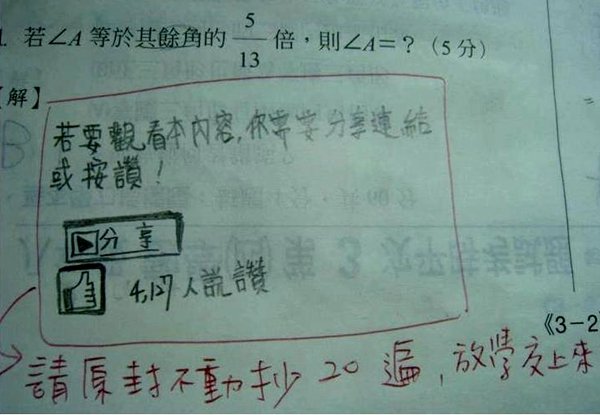 1. 若∠A等於其餘角的 5/13 倍，則∠A=？（5分）
【解】
若要觀看本內容，你需要分享連結
或按讚！
分享
4,127人說讚
《3-2
請原封不動抄20遍，放學交上來